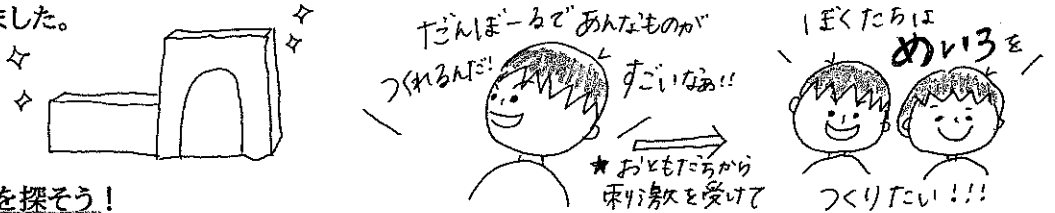 ました。
だんぼーるであんなものが
つくれるんだ!
すごいなぁ!!
★おともだちから
刺激を受けて
ぼくたちは
めいろを
つくりたい!!!
を探そう!